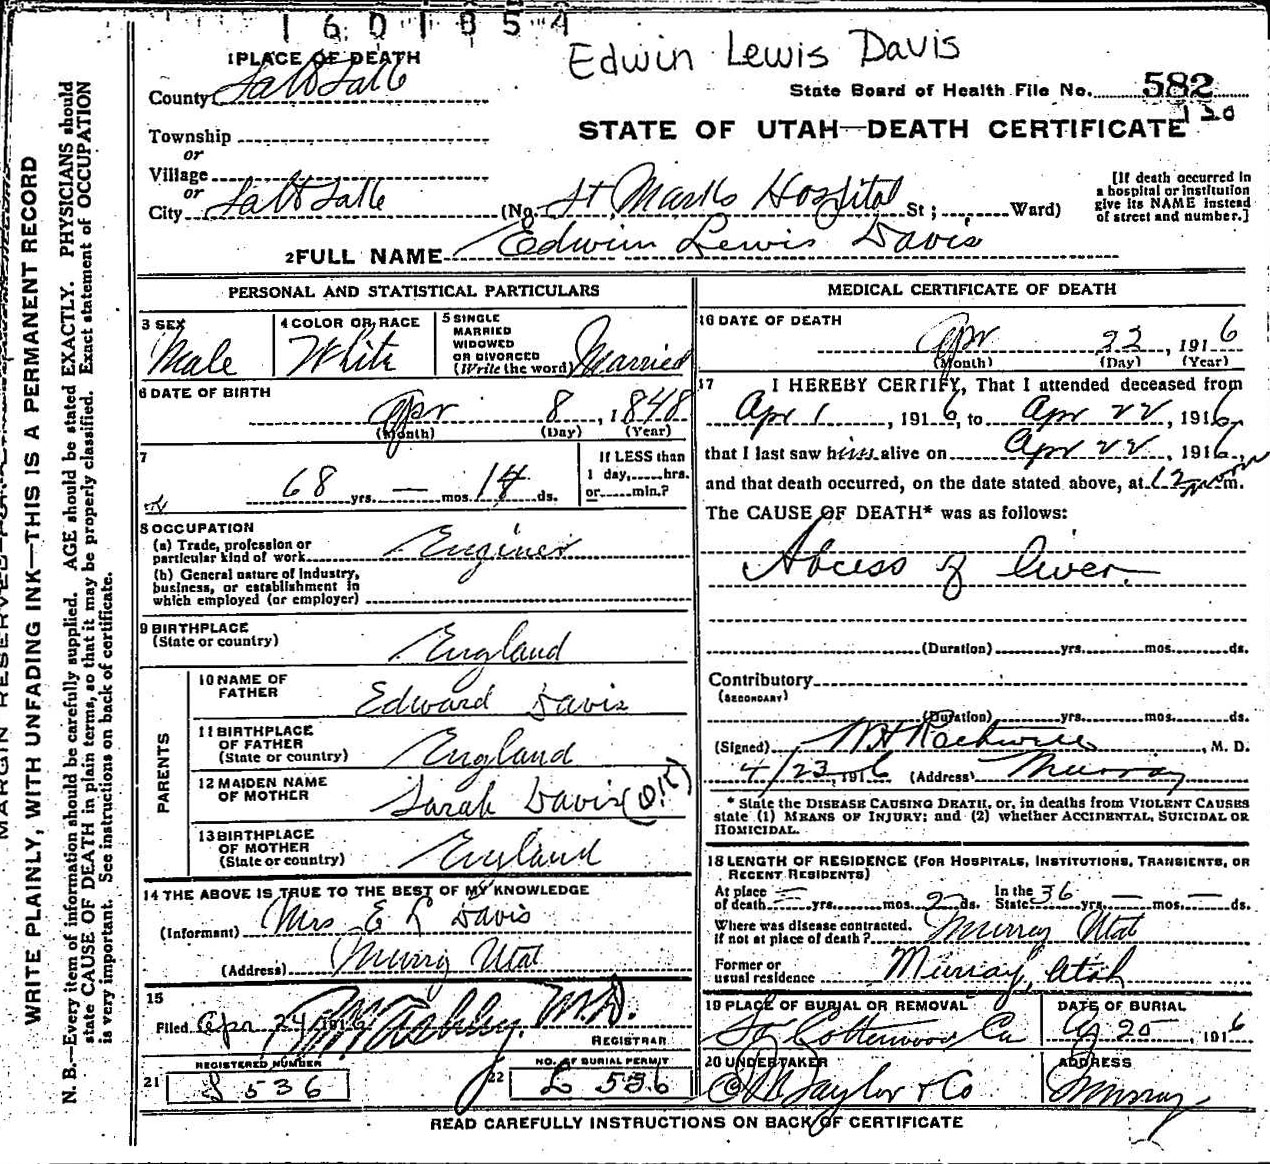 1601854
Edwin Lewis Davis
1 PLACE OF DEATH
County Salt Lake
State Board of Health File No. 582
120
STATE OF UTAH—DEATH CERTIFICATE
Township
or
Village
or
City Salt Lake (No. St Marks Hospital St; Ward)
[If death occurred in a hospital or institution give its NAME instead of street and number.]
2 FULL NAME Edwin Lewis Davis
PERSONAL AND STATISTICAL PARTICULARS
3 SEX
Male
4 COLOR OR RACE
White
5 SINGLE MARRIED WIDOWED OR DIVORCED (Write the word) Married
6 DATE OF BIRTH
Apr 8, 1848
(Month) (Day) (Year)
7
68 yrs. — mos. 14 ds.
If LESS than 1 day, hrs. or min.?
8 OCCUPATION
(a) Trade, profession or particular kind of work Enginer
(b) General nature of industry, business, or establishment in which employed (or employer)
9 BIRTHPLACE
(State or country) England
PARENTS
10 NAME OF FATHER Edward Davis
11 BIRTHPLACE OF FATHER (State or country) England
12 MAIDEN NAME OF MOTHER Sarah Davis (O.K)
13 BIRTHPLACE OF MOTHER (State or country) England
14 THE ABOVE IS TRUE TO THE BEST OF MY KNOWLEDGE
(Informant) Mrs E L Davis
(Address) Murray Utah
15
Filed Apr 24 1916 M.D.
REGISTRAR
REGISTERED NUMBER
21 L 536
NO. OF BURIAL PERMIT
22 L 536
MEDICAL CERTIFICATE OF DEATH
16 DATE OF DEATH
Apr 22, 1916
(Month) (Day) (Year)
17 I HEREBY CERTIFY, That I attended deceased from
Apr 1, 1916, to Apr 22, 1916,
that I last saw him alive on Apr 22, 1916,
and that death occurred, on the date stated above, at 12 noon m.
The CAUSE OF DEATH* was as follows:
Abcess of liver.
(Duration) yrs. mos. ds.
Contributory
(SECONDARY)
(Duration) yrs. mos. ds.
(Signed) , M. D.
4/23, 1916 (Address) Murray
* State the DISEASE CAUSING DEATH, or, in deaths from VIOLENT CAUSES
state (1) MEANS OF INJURY; and (2) whether ACCIDENTAL, SUICIDAL OR
HOMICIDAL.
18 LENGTH OF RESIDENCE (FOR HOSPITALS, INSTITUTIONS, TRANSIENTS, OR
RECENT RESIDENTS)
At place of death — yrs. mos. 2 ds. In the State 36 yrs. — mos. — ds.
Where was disease contracted, if not at place of death? Murray Utah
Former or usual residence Murray, Utah
19 PLACE OF BURIAL OR REMOVAL
So Cottonwood
DATE OF BURIAL
25, 1916
20 UNDERTAKER
Taylor & Co
ADDRESS
Murray
READ CAREFULLY INSTRUCTIONS ON BACK OF CERTIFICATE
MARGIN RESERVED
WRITE PLAINLY, WITH UNFADING INK—THIS IS A PERMANENT RECORD
N. B.—Every item of information should be carefully supplied. AGE should be stated EXACTLY. PHYSICIANS should
state CAUSE OF DEATH in plain terms, so that it may be properly classified. Exact statement of OCCUPATION
is very important. See instructions on back of certificate.